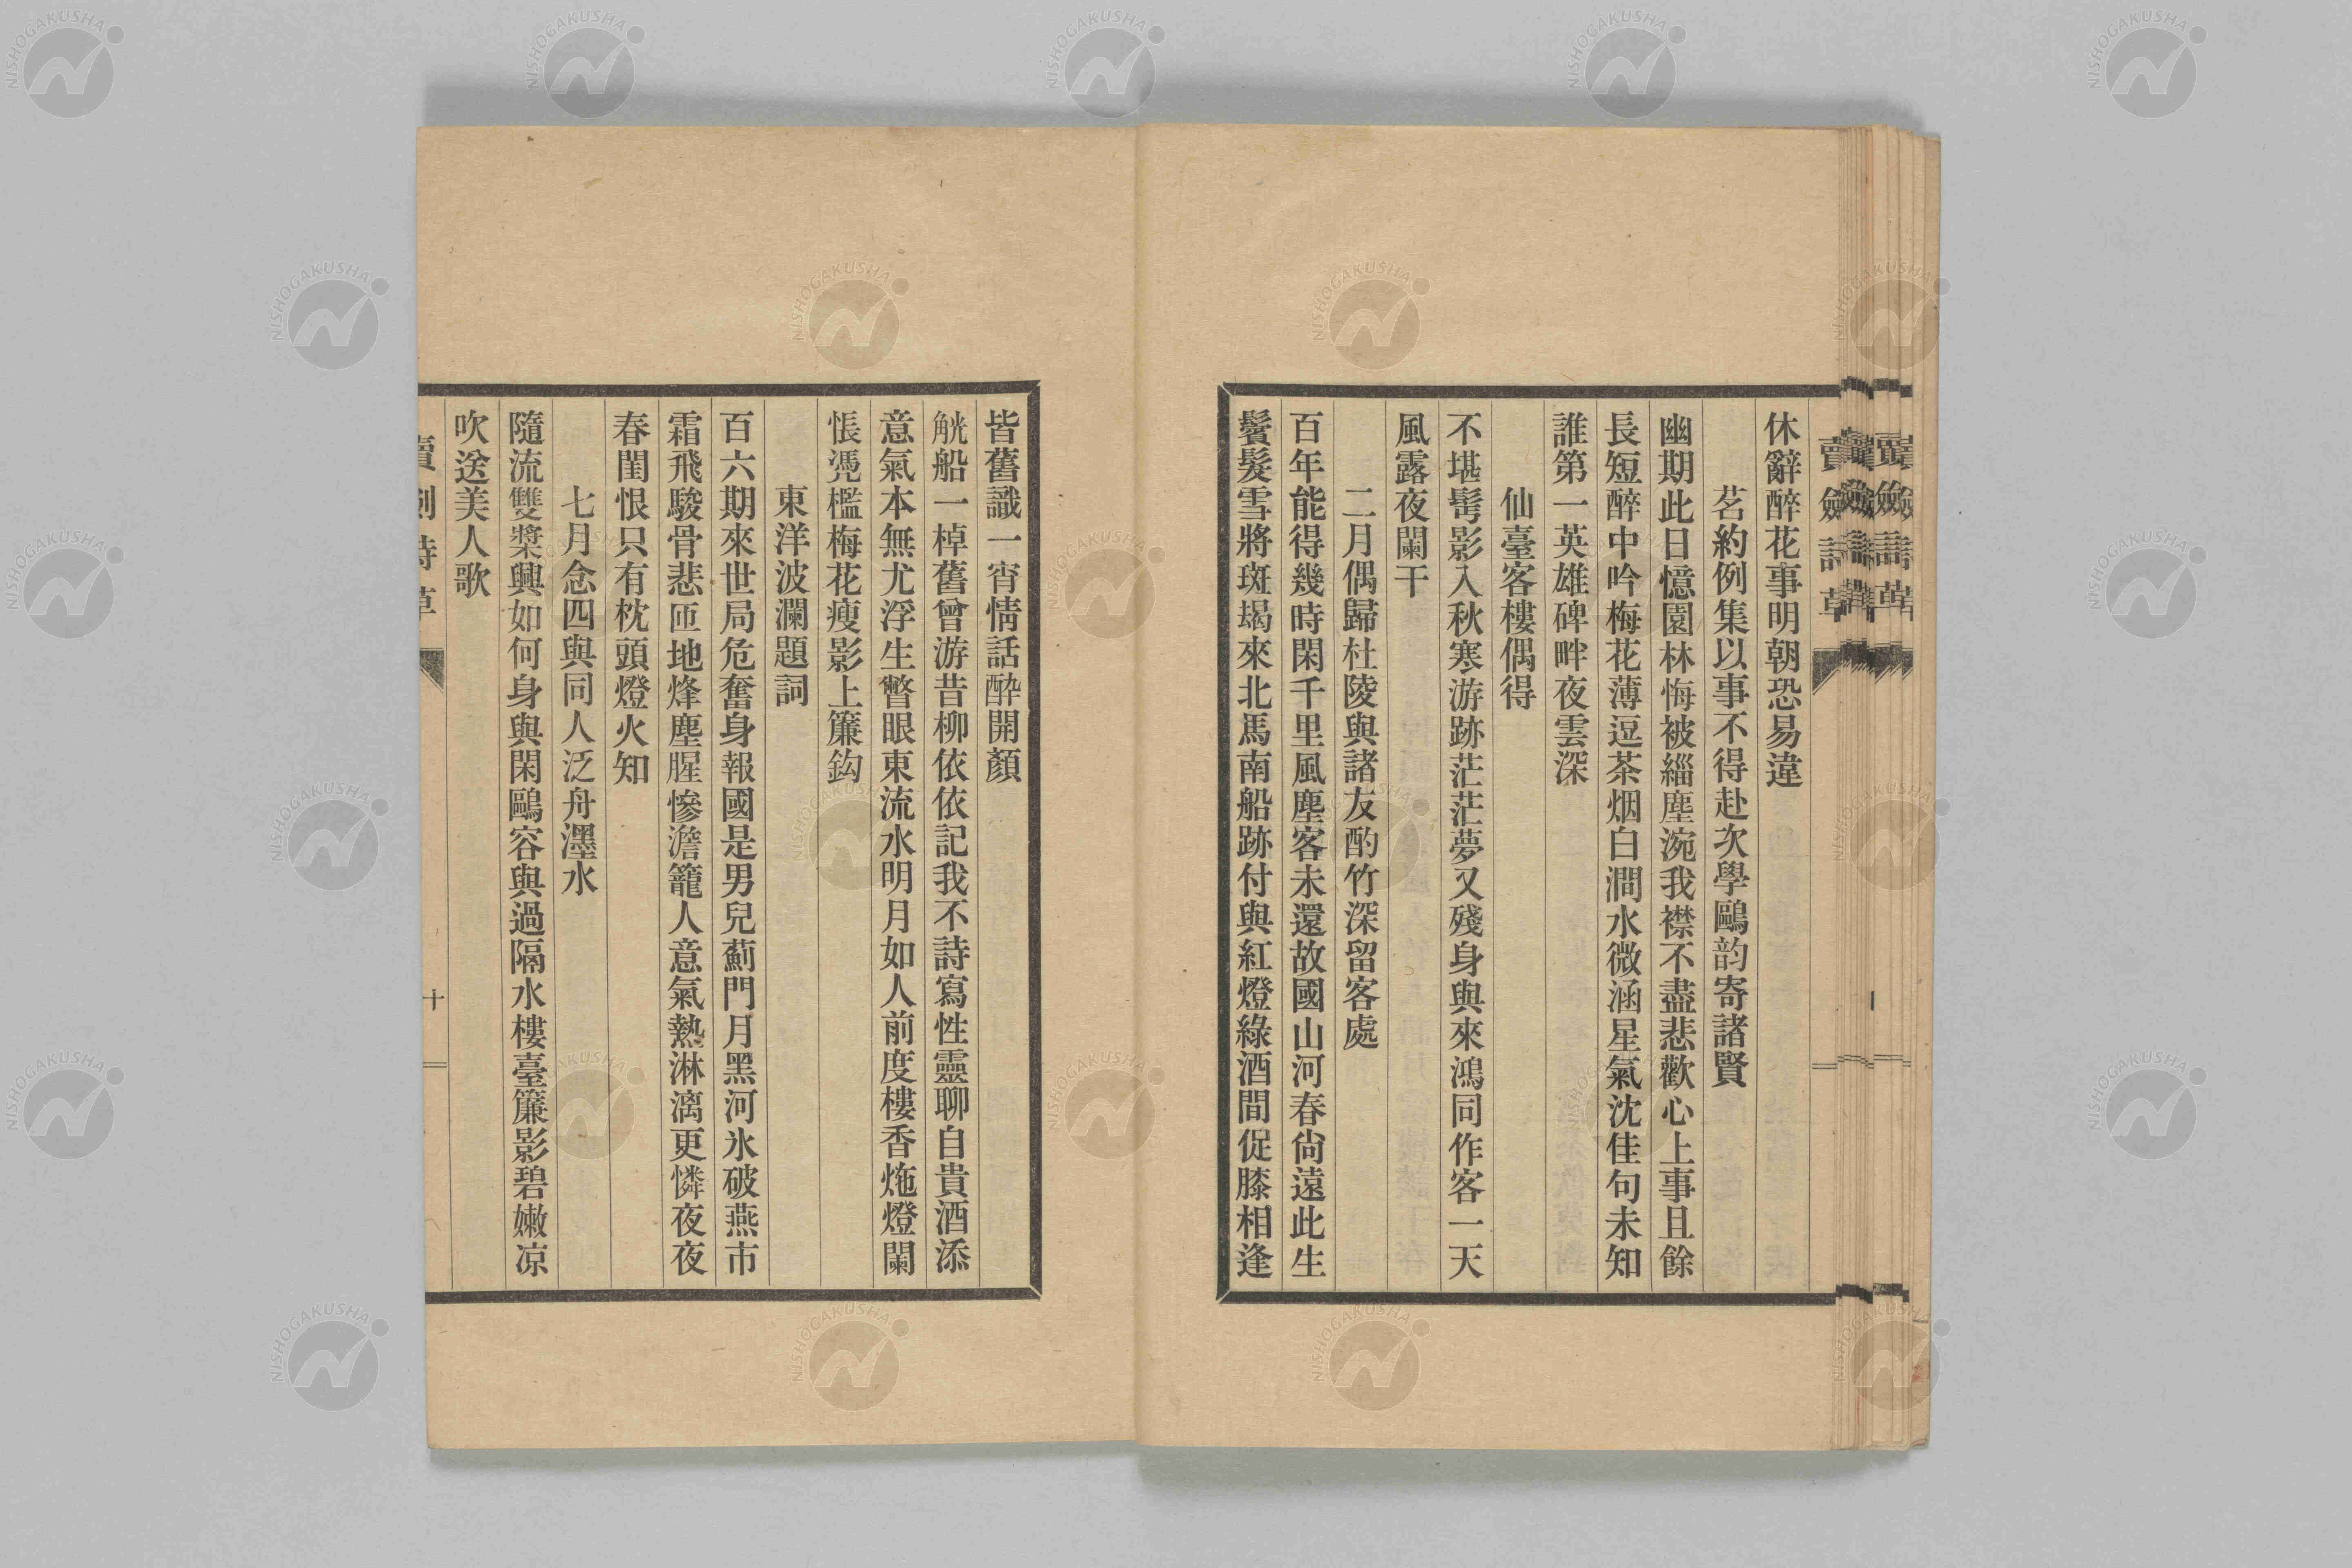 賣劍詩草
休辭醉花事明朝恐易違
茗約例集以事不得赴次學鷗韵寄諸賢
幽期此日憶園林悔被緇塵涴我襟不盡悲歡心上事且餘
長短醉中吟梅花薄逗茶烟白澗水微涵星氣沈佳句未知
誰第一英雄碑畔夜雲深
仙臺客樓偶得
不堪髩影入秋寒游跡茫茫夢又殘身與來鴻同作客一天
風露夜闌干
二月偶歸杜陵與諸友酌竹深留客處
百年能得幾時閑千里風塵客未還故國山河春尙遠此生
鬢髮雪將斑朅來北馬南船跡付與紅燈綠酒間促膝相逢
皆舊識一宵情話醉開顏
觥船一棹舊曾游昔柳依依記我不詩寫性靈聊自貴酒添
意氣本無尤浮生瞥眼東流水明月如人前度樓香灺燈闌
悵凴檻梅花瘦影上簾鈎
東洋波瀾題詞
百六期來世局危奮身報國是男兒薊門月黑河氷破燕市
霜飛駿骨悲匝地烽塵腥慘澹籠人意氣熱淋漓更憐夜夜
春閨恨只有枕頭燈火知
七月念四與同人泛舟濹水
隨流雙槳興如何身與閑鷗容與過隔水樓臺簾影碧嫩凉
吹送美人歌
賣劍詩草
十
NISHOGAKUSHA